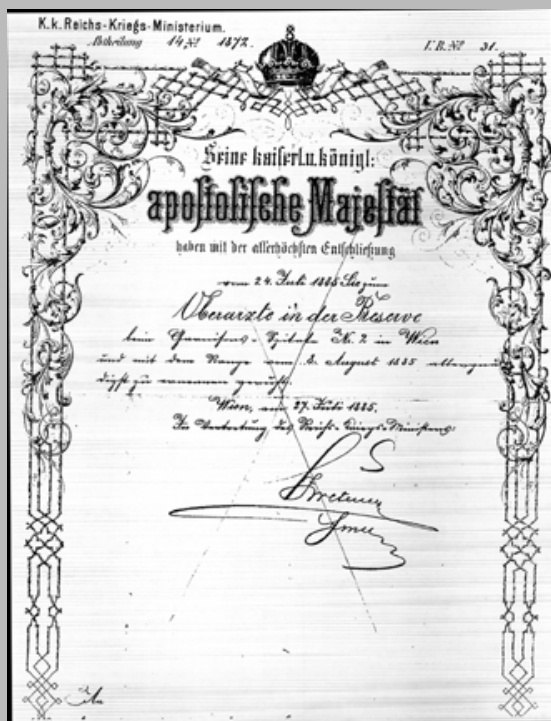 K.k. Reichs-Kriegs-Ministerium.
Abtheilung 14 No 1872.
No 31.
Seine kaiserl. u. königl:
apostolische Majestät
haben mit der allerhöchsten Entschließung
vom 24. Juli 1885 Sie zum
Oberarzte in der Reserve
beim Garnisons-Spitale No. 2 in Wien
und mit dem Range vom August 1885 allergnä
digst zu ernennen geruht.
Wien, am 27. Juli 1885.
In Vertretung des Reichs-Kriegs-Ministers: